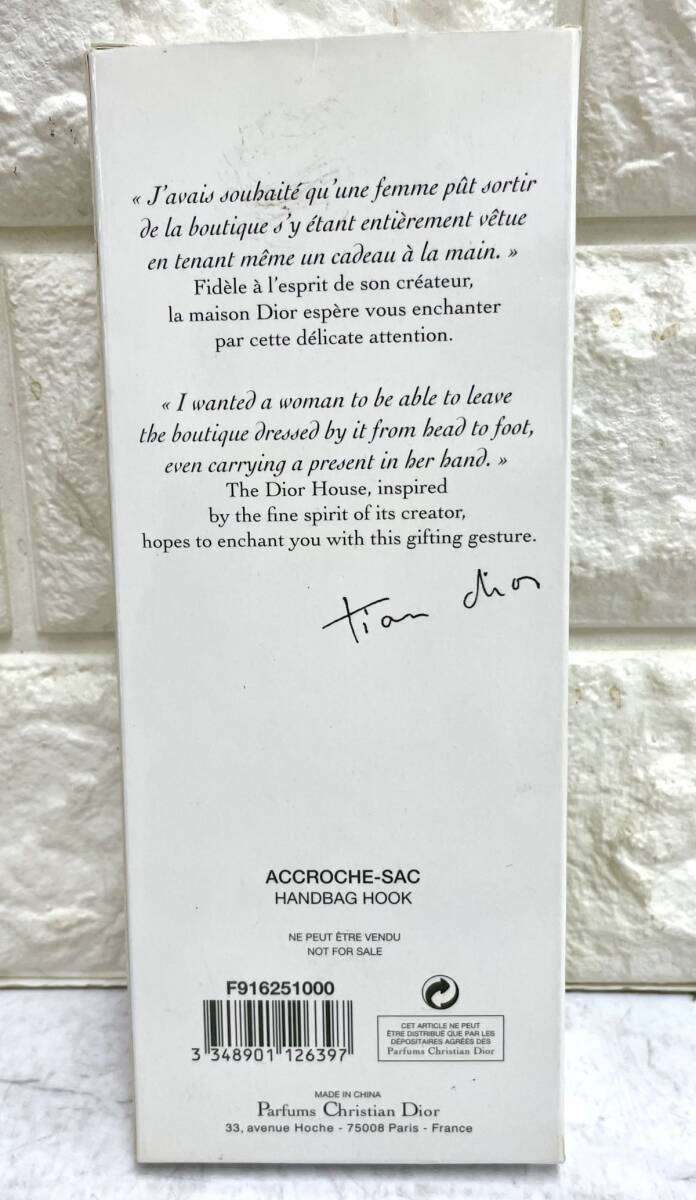 « J'avais souhaité qu'une femme pût sortir
de la boutique s'y étant entièrement vêtue
en tenant même un cadeau à la main. »
Fidèle à l'esprit de son créateur,
la maison Dior espère vous enchanter
par cette délicate attention.
« I wanted a woman to be able to leave
the boutique dressed by it from head to foot,
even carrying a present in her hand. »
The Dior House, inspired
by the fine spirit of its creator,
hopes to enchant you with this gifting gesture.
tian dior
ACCROCHE-SAC
HANDBAG HOOK
NE PEUT ÊTRE VENDU
NOT FOR SALE
F916251000
3 348901 126397
CET ARTICLE NE PEUT
ÊTRE DISTRIBUÉ QUE PAR LES
DÉPOSITAIRES AGRÉÉS DES
Parfums Christian Dior
MADE IN CHINA
Parfums Christian Dior
33, avenue Hoche - 75008 Paris - France